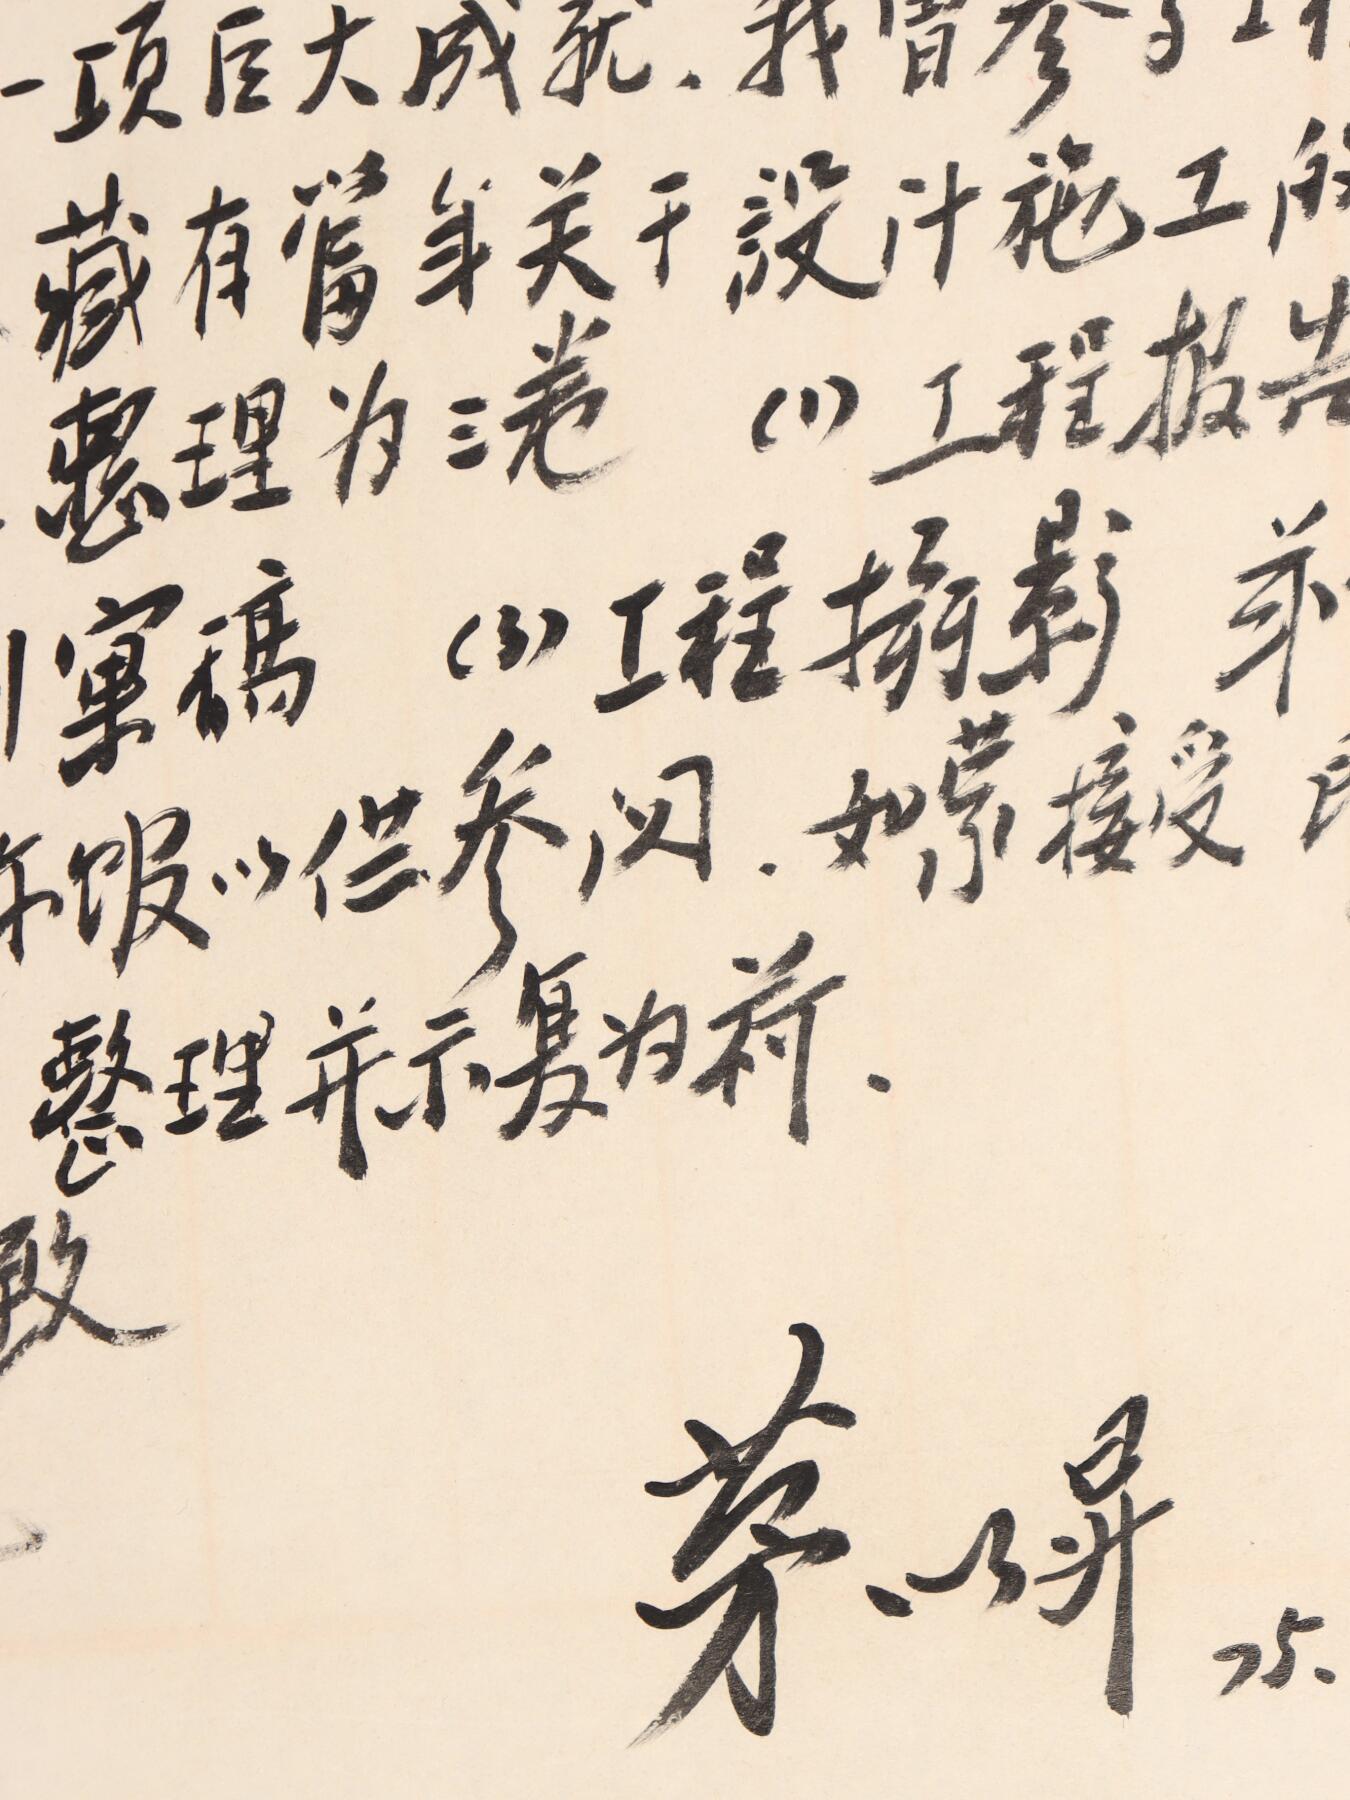 一项巨大成就.我曾参与工程
藏有當年关于設计施工的
整理为三卷 (1)工程报告
寓稿 (3)工程攝影 并
你暇以供参閱.如蒙接受 即
整理并示复为荷.
敬
茅以昇
75.